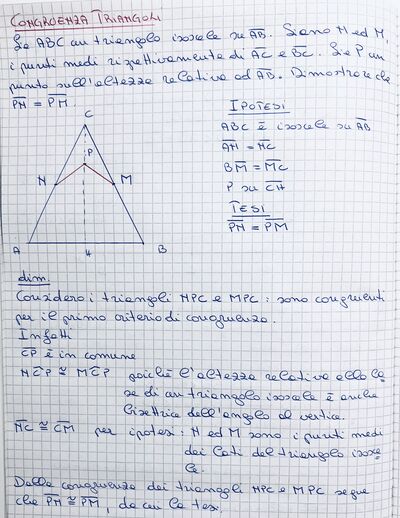 CONGRUENZA TRIANGOLI
Se ABC un triangolo isoscele su AB. Siano N ed M,
i punti medi rispettivamente di AC e BC. Se P un
punto sull'altezza relativa ad AB. Dimostrare che
PN = PM.
IPOTESI
ABC è isoscele su AB
AN = NC
BM = MC
P su CH
TESI
PN = PM
C
P
N
M
A
H
B
dim.
Considero i triangoli NPC e MPC: sono congruenti
per il primo criterio di congruenza.
Infatti
CP è in comune
NĈP ≅ MĈP poiché l'altezza relativa alla ba
se di un triangolo isoscele è anche
bisettrice dell'angolo al vertice.
NC ≅ CM per ipotesi: N ed M sono i punti medi
dei lati del triangolo isosce
le.
Dalla congruenza dei triangoli NPC e MPC segue
che PN ≅ PM, da cui la tesi.